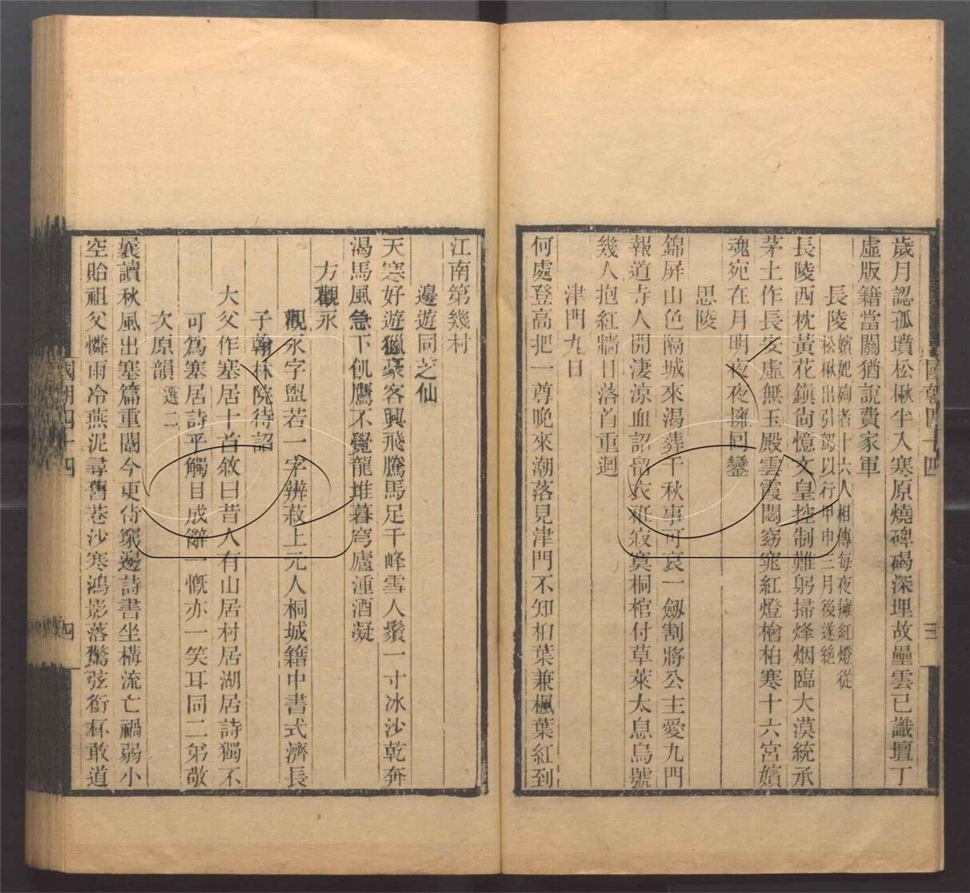 歲月認孤墳松楸半入寒原燒碑碣深埋故壘雲已識壇丁
虛版籍當關猶說費家軍
長陵嬪妃殉者十六人相傳每夜擁紅燈從
松楸出引駕以行甲申三月後遂絶
長陵西枕黃花鎮尙憶文皇控制難躬掃烽烟臨大漠統承
茅土作長安虛無玉殿雲霞閟窈窕紅燈檜柏寒十六宮嬪
魂宛在月明夜夜擁回鑾
思陵
錦屏山色隔城來渴葬千秋事可哀一劔割將公主愛九門
報道寺人開淒涼血詔留衣袵寂寞桐棺付草萊太息烏號
幾人抱紅牆日落首重迴
津門九日
何處登高把一尊晚來潮落見津門不知桕葉兼楓葉紅到
國朝四十四
三
江南第幾村
邊遊同芝仙
天寒好遊獵豪客興飛騰馬足千峰雪人鬚一寸冰沙乾奔
渴馬風急下飢鷹不覺龍堆暮穹廬湩酒凝
方觀永
觀永字盥若一字辨菽上元人桐城籍中書式濟長
子翰林院待詔
大父作塞居十首敘曰昔人有山居村居湖居詩獨不
可爲塞居詩乎觸目成辭一慨亦一笑耳同二弟敬
次原韻選二
曩讀秋風出塞篇重闈今更侍窮邊詩書坐構流亡禍弱小
空貽祖父憐雨冷燕泥尋舊巷沙寒鴻影落驚弦銜杯敢道
國朝四十四
四